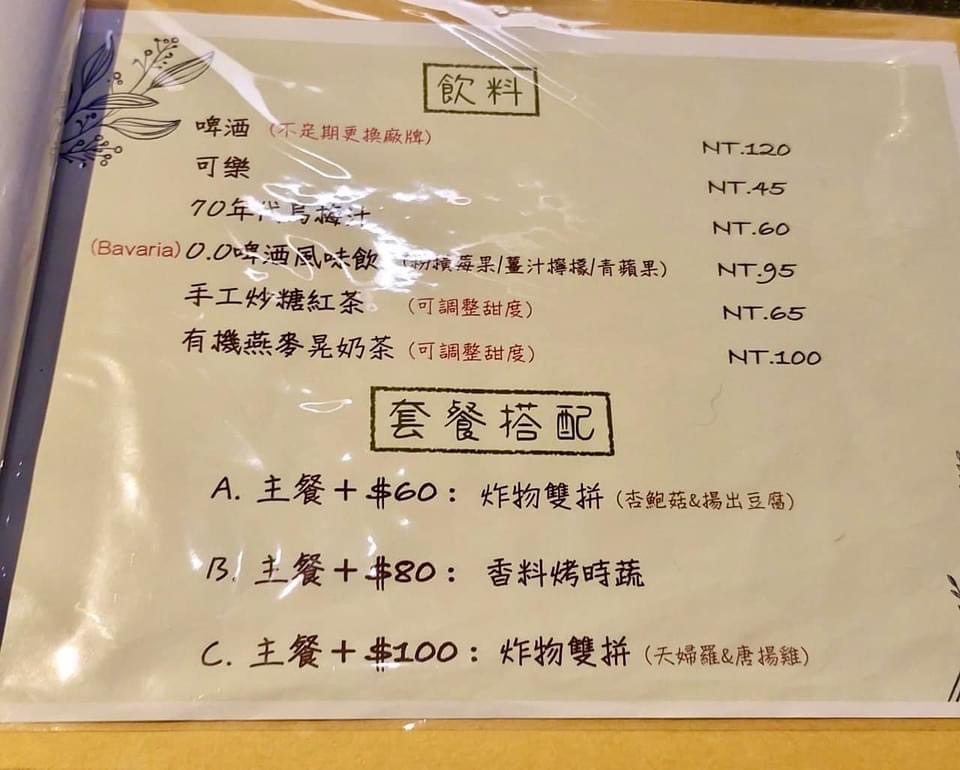 飲料
啤酒 (不定期更換廠牌) NT.120
可樂 NT.45
70年代烏梅汁 NT.60
(Bavaria) 0.0啤酒風味飲 (粉擴莓果/薑汁檸檬/青蘋果) NT.95
手工炒糖紅茶 (可調整甜度) NT.65
有機燕麥晃奶茶 (可調整甜度) NT.100
套餐搭配
A. 主餐+$60: 炸物雙拼 (杏鮑菇&揚出豆腐)
B. 主餐+$80: 香料烤時蔬
C. 主餐+$100: 炸物雙拼 (天婦羅&唐揚雞)